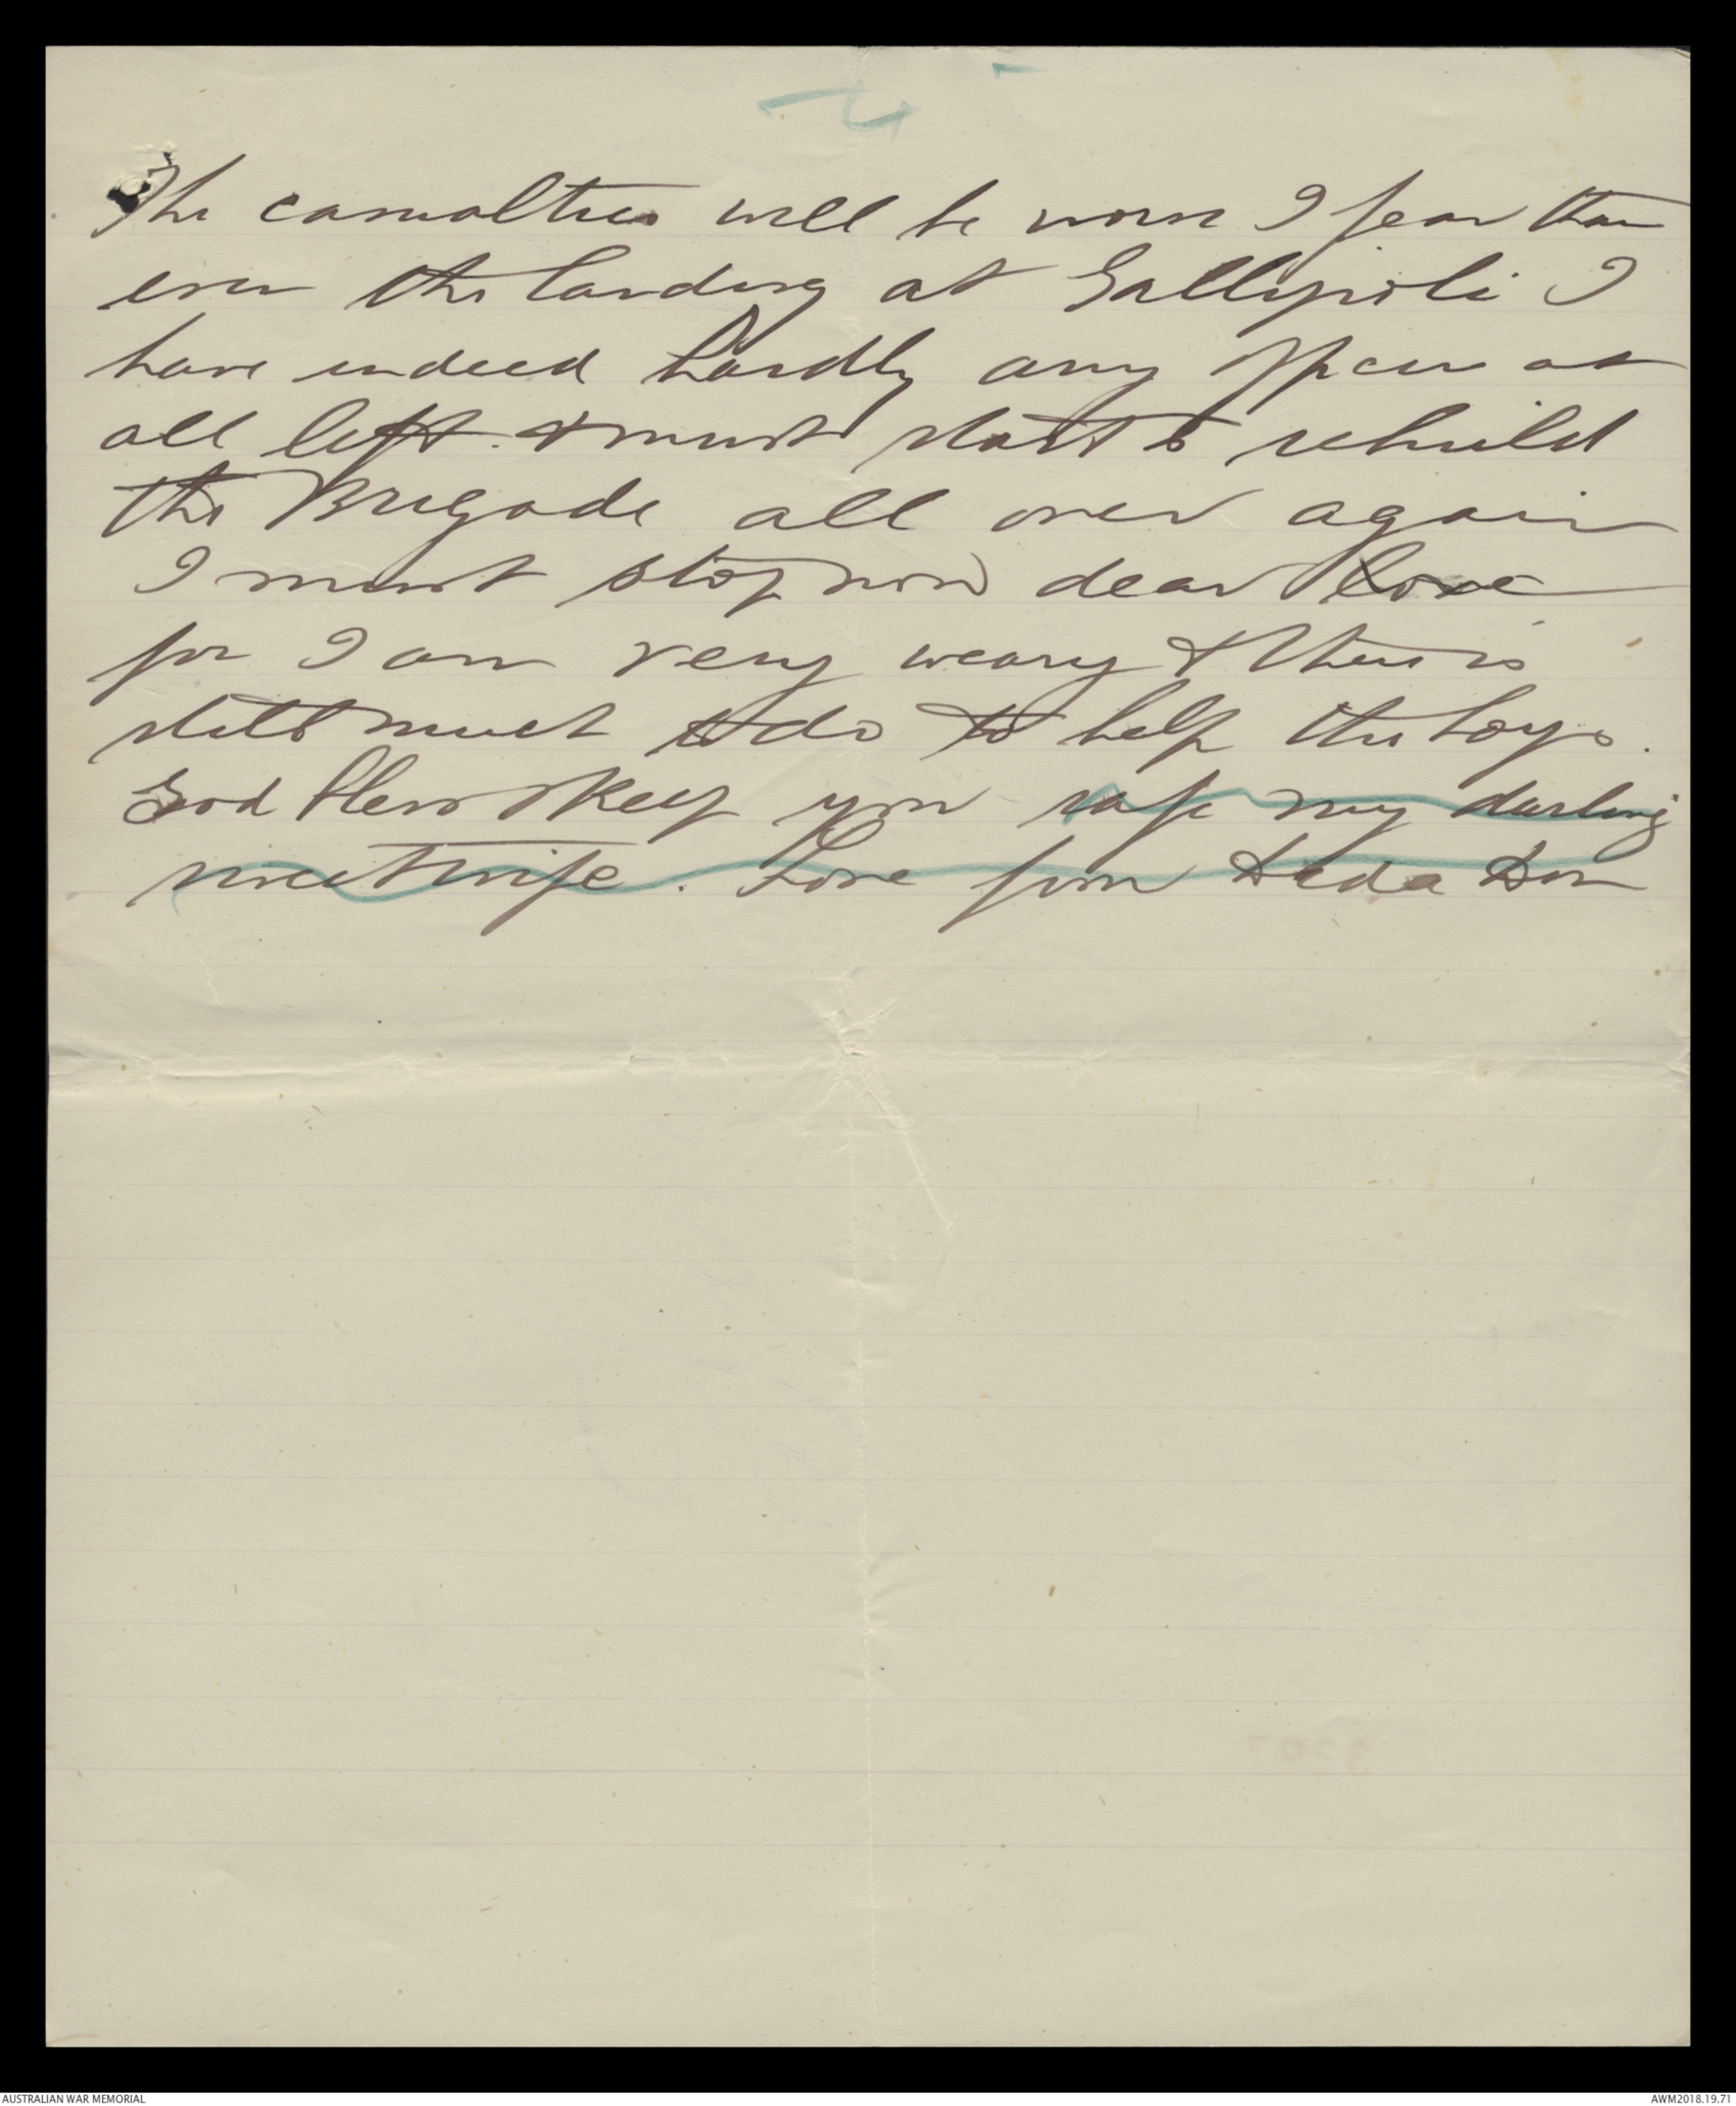 The casualties will be worse I fear than
even the landing at Gallipoli I
have indeed hardly any offrcers at
all left. & must start to rebuild
the Brigade all over again
I must stop now dear love
for I am very weary & there is
still much to do to help the boys.
God bless & keep you safe my darling
sweet wife. Love from Dada Don
AUSTRALIAN WAR MEMORIAL
AWM2018.19.71